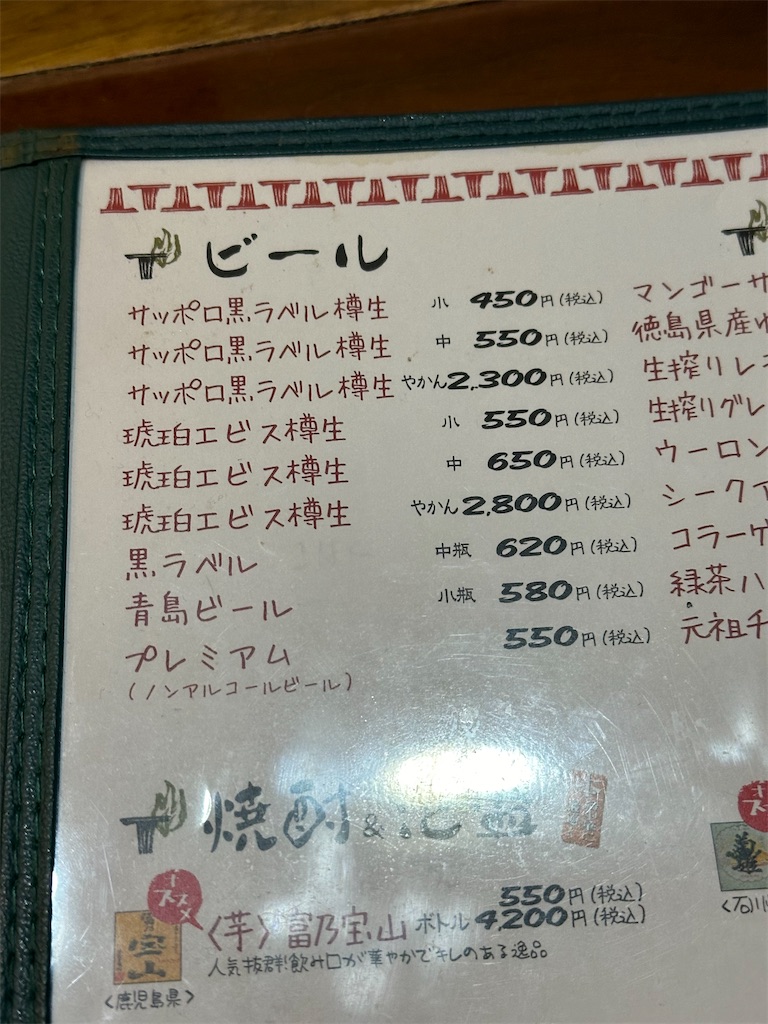 ビール
サッポロ黒ラベル樽生 小 450円(税込)
サッポロ黒ラベル樽生 中 550円(税込)
サッポロ黒ラベル樽生 やかん 2,300円(税込)
琥珀エビス樽生 小 550円(税込)
琥珀エビス樽生 中 650円(税込)
琥珀エビス樽生 やかん 2,800円(税込)
黒ラベル 中瓶 620円(税込)
青島ビール 小瓶 580円(税込)
プレミアム 550円(税込)
(ノンアルコールビール)
マンゴーサ
徳島県産
生搾りレ
生搾りグレ
ウーロン
シークァ
コラーゲ
緑茶ハ
元祖
焼酎&
オススメ
宝山
<鹿児島県>
550円(税込)
<芋> 富乃宝山 ボトル 4,200円(税込)
人気抜群!飲み口が華やかでキレのある逸品
<石川